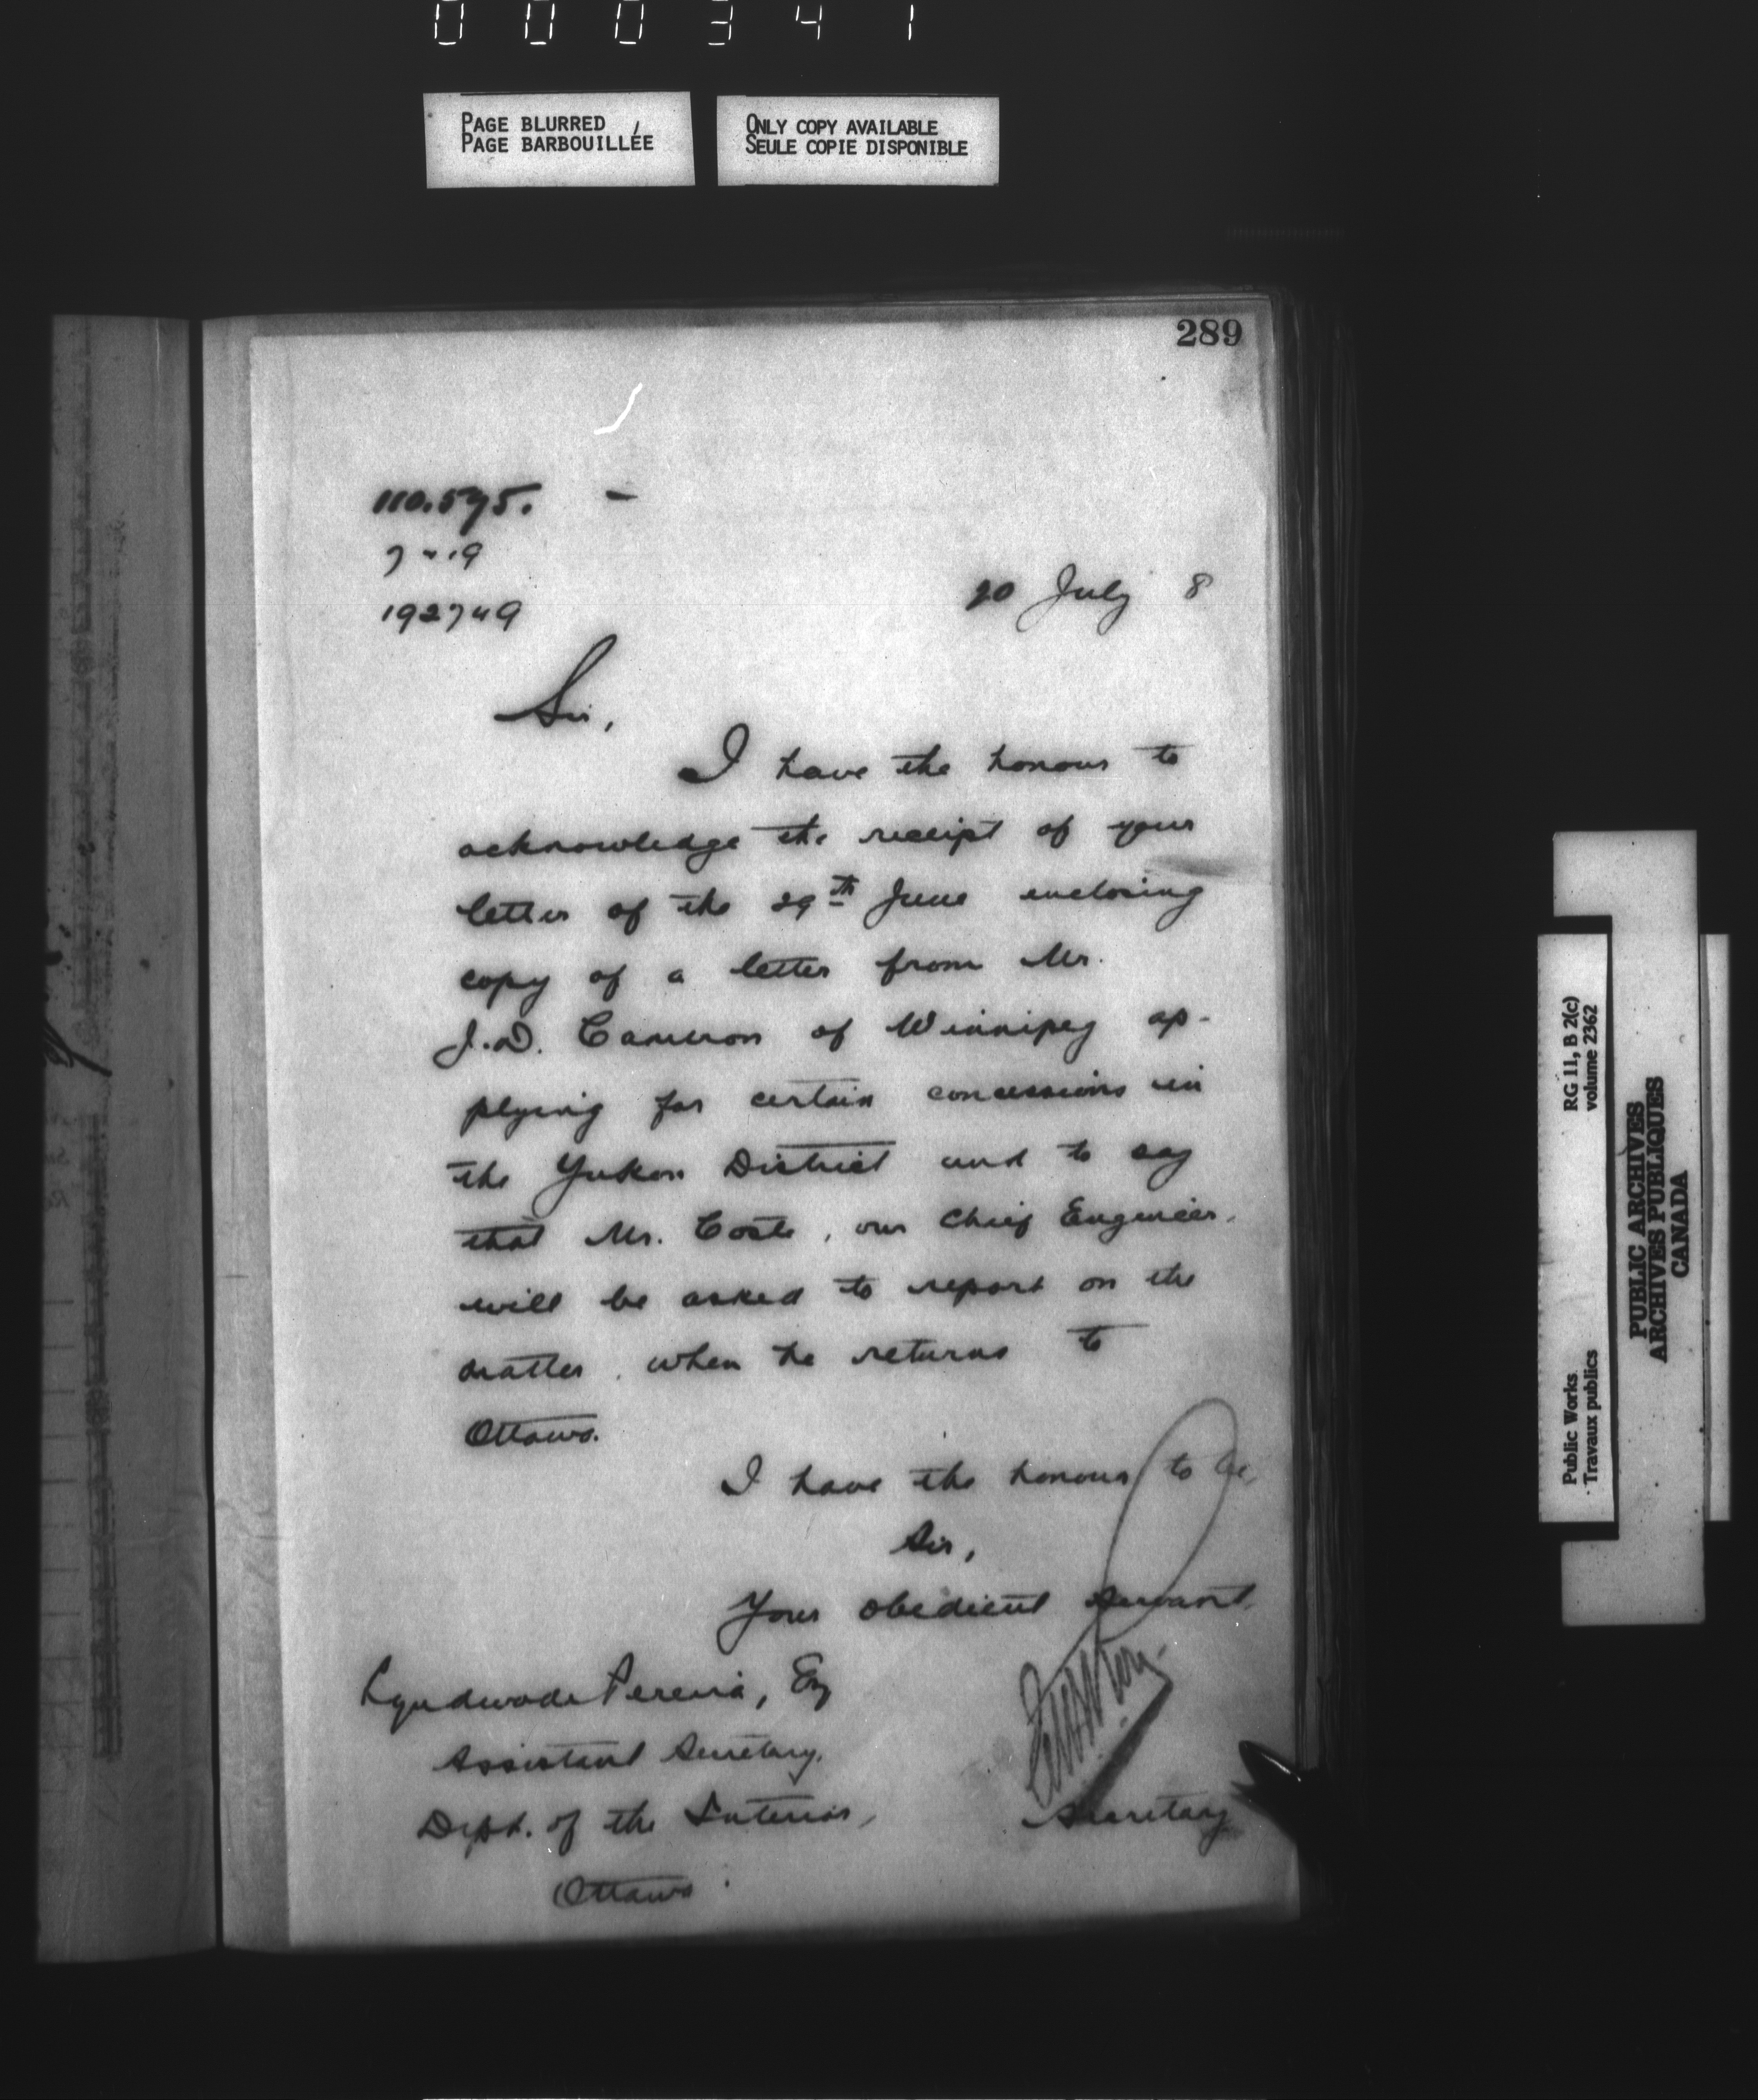 000341
PAGE BLURRED
PAGE BARBOUILLÉE
ONLY COPY AVAILABLE
SEULE COPIE DISPONIBLE
289
110.575. -
192749
20 July 8
Sir,
I have the honour to
acknowledge the receipt of your
letter of the 29th June enclosing
copy of a letter from Mr.
J.D. Cameron of Winnipeg ap-
plying for certain concessions in
the Yukon District and to say
that Mr. Coste, our Chief Engineer,
will be asked to report on the
matter, when he returns to
Ottawa.
I have the honour to be,
Sir,
Your obedient servant,
Lyndwode Pereira, Esq
Assistant Secretary,
Dept. of the Interior,
Ottawa
Secretary
RG 11, B 2(c)
volume 2362
Public Works
Travaux publics
PUBLIC ARCHIVES
ARCHIVES PUBLIQUES
CANADA